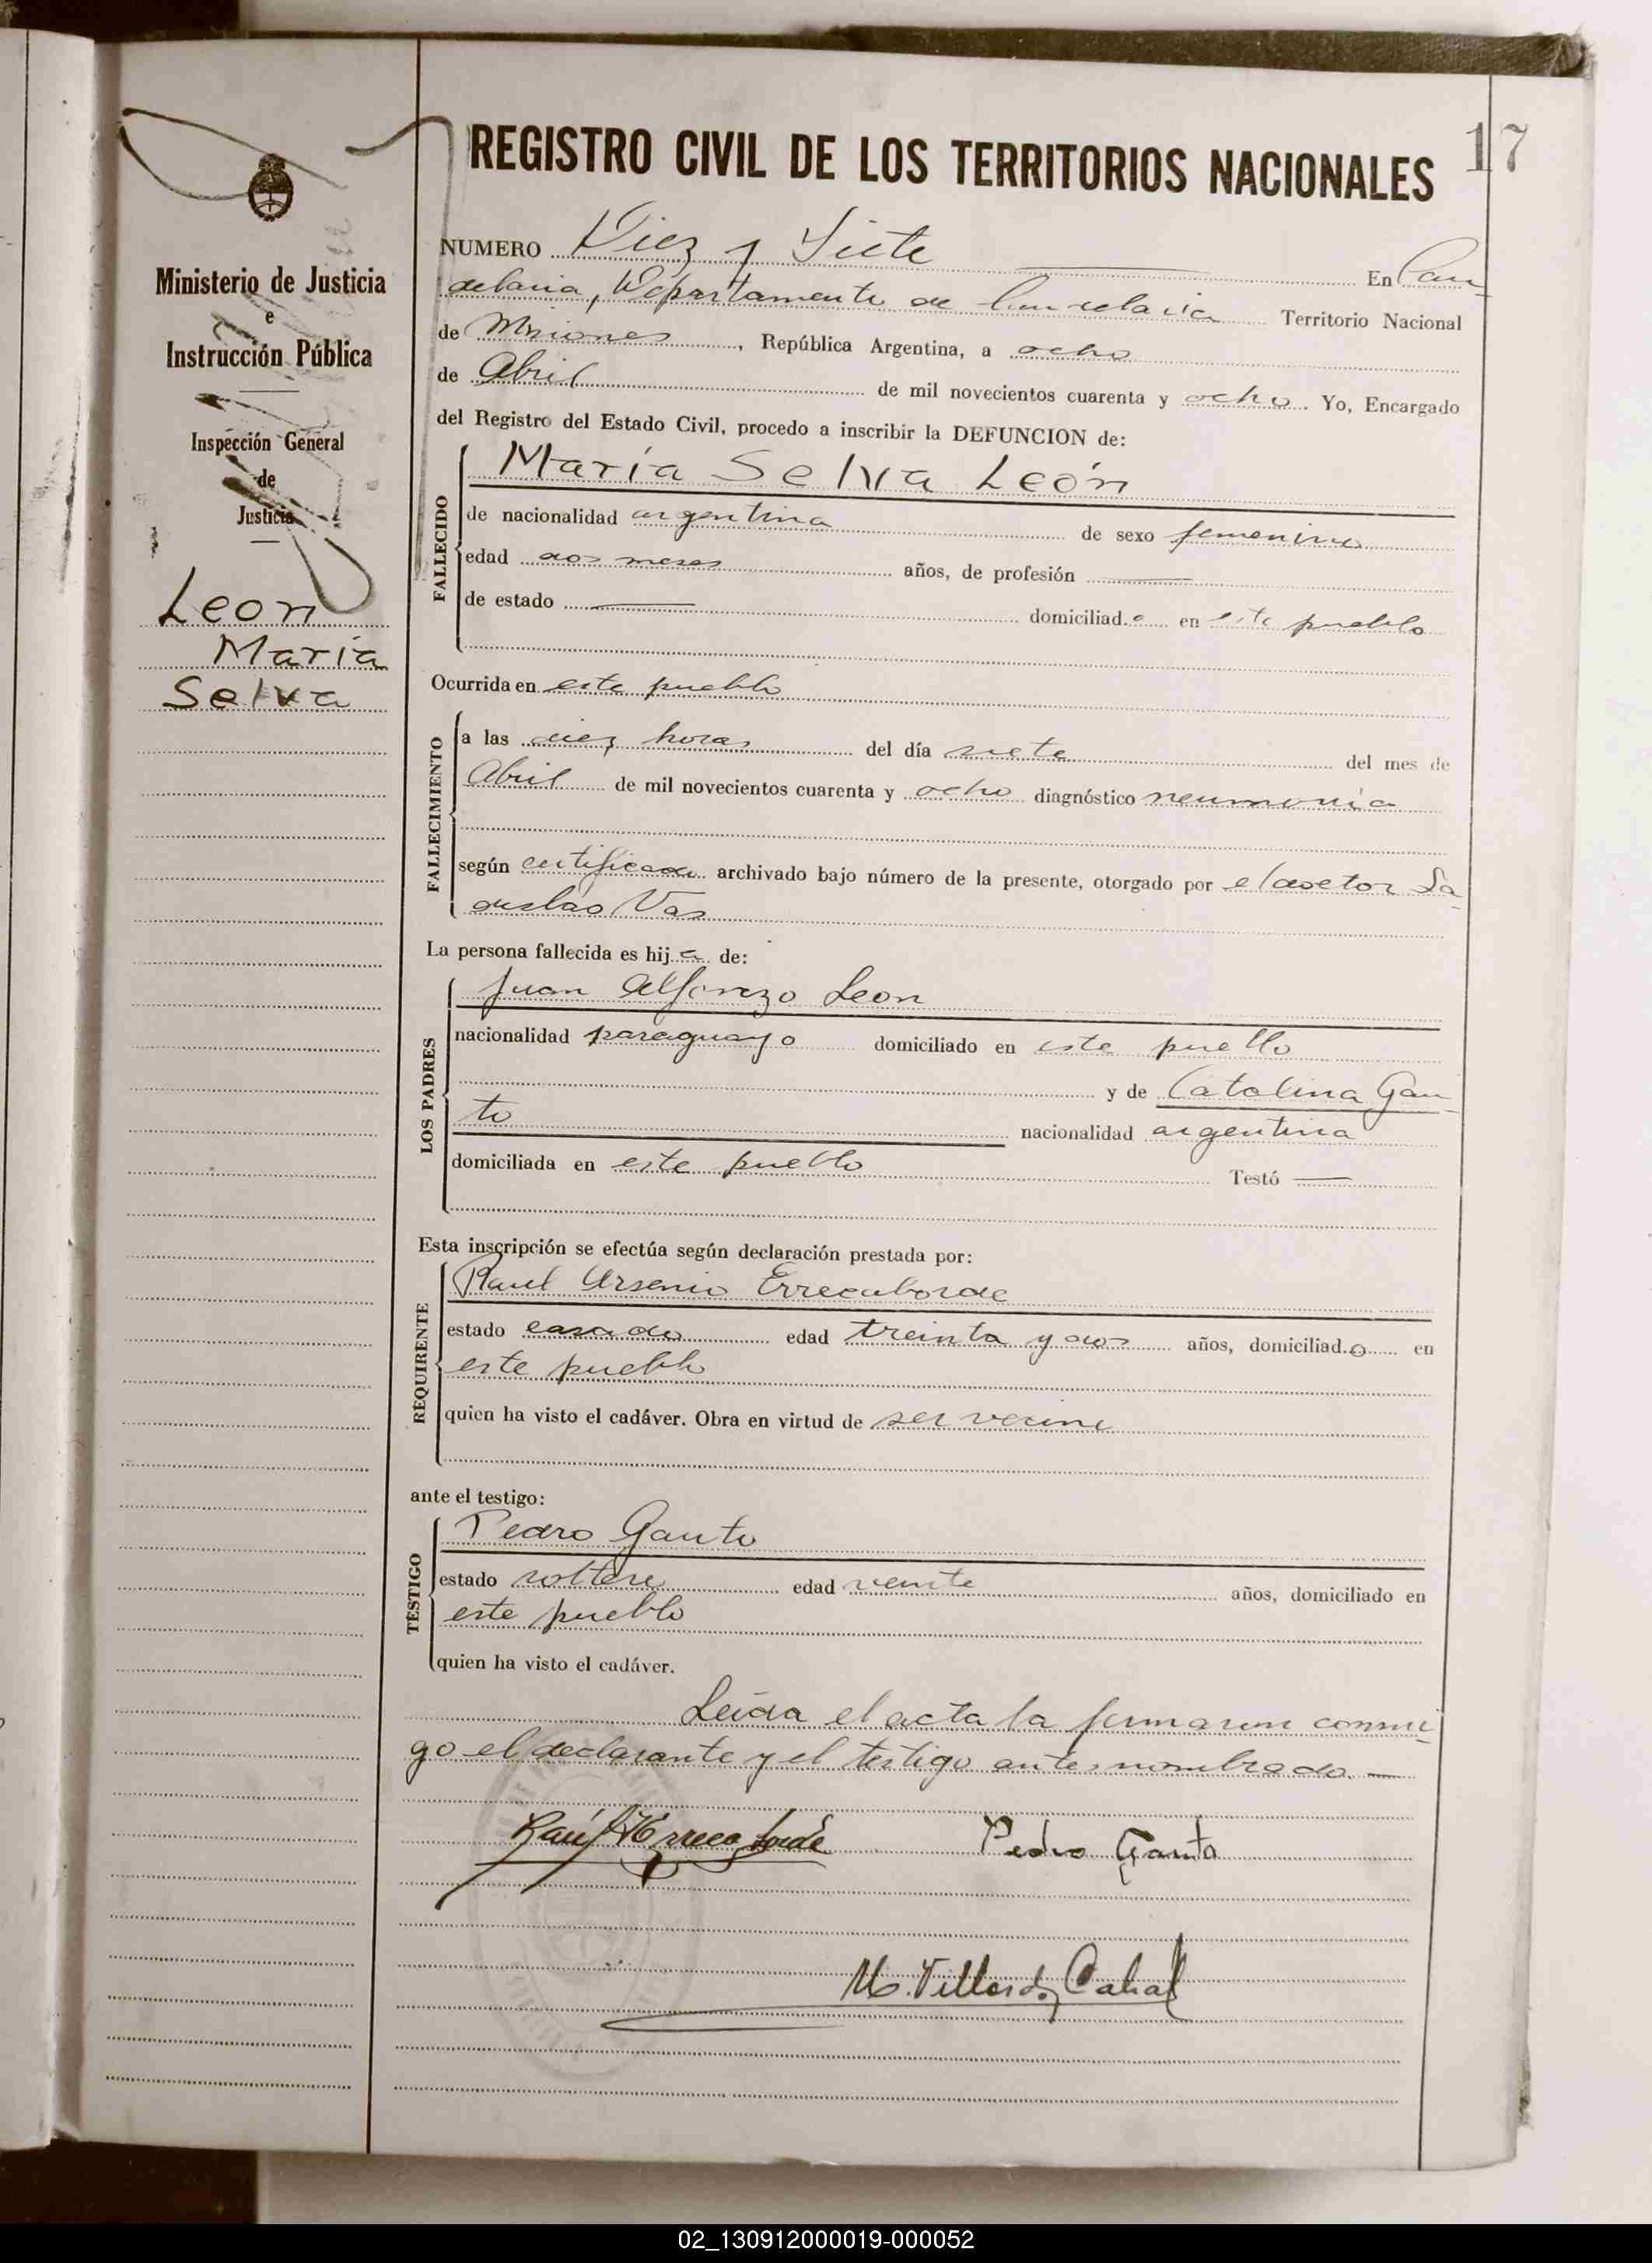 17
REGISTRO CIVIL DE LOS TERRITORIOS NACIONALES
Ministerio de Justicia
e
Instrucción Pública
Inspección General
de
Justicia
Leon
María
Selva
NUMERO Diez y Siete En Can-
delaria, Departamento de Candelaria Territorio Nacional
de Misiones, República Argentina, a ocho
de Abril de mil novecientos cuarenta y ocho. Yo, Encargado
del Registro del Estado Civil, procedo a inscribir la DEFUNCION de:
FALLECIDO
María Selva León
de nacionalidad argentina de sexo femenino
edad dos meses años, de profesión —
de estado — domiciliad.a en este pueblo
Ocurrida en este pueblo
FALLECIMIENTO
a las diez horas del día siete del mes de
Abril de mil novecientos cuarenta y ocho diagnóstico neumonía
según certificado archivado bajo número de la presente, otorgado por el doctor La-
dislao Vas
La persona fallecida es hij.a de:
LOS PADRES
Juan Alfonzo Leon
nacionalidad paraguayo domiciliado en este pueblo
y de Catalina Gau-
to nacionalidad argentina
domiciliada en este pueblo Testó —
Esta inscripción se efectúa según declaración prestada por:
REQUIRENTE
Raul Arsenio Errecaborde
estado casado edad treinta y dos años, domiciliad.o en
este pueblo
quien ha visto el cadáver. Obra en virtud de ser vecino
ante el testigo:
TESTIGO
Pedro Gauto
estado soltero edad veinte años, domiciliado en
este pueblo
quien ha visto el cadáver.
Leída el acta la firmaron conmi-
go el declarante y el testigo antes nombrado. —
Raúl A Errecaborde Pedro Gauto
M. Villordo Cabal
02_130912000019-000052